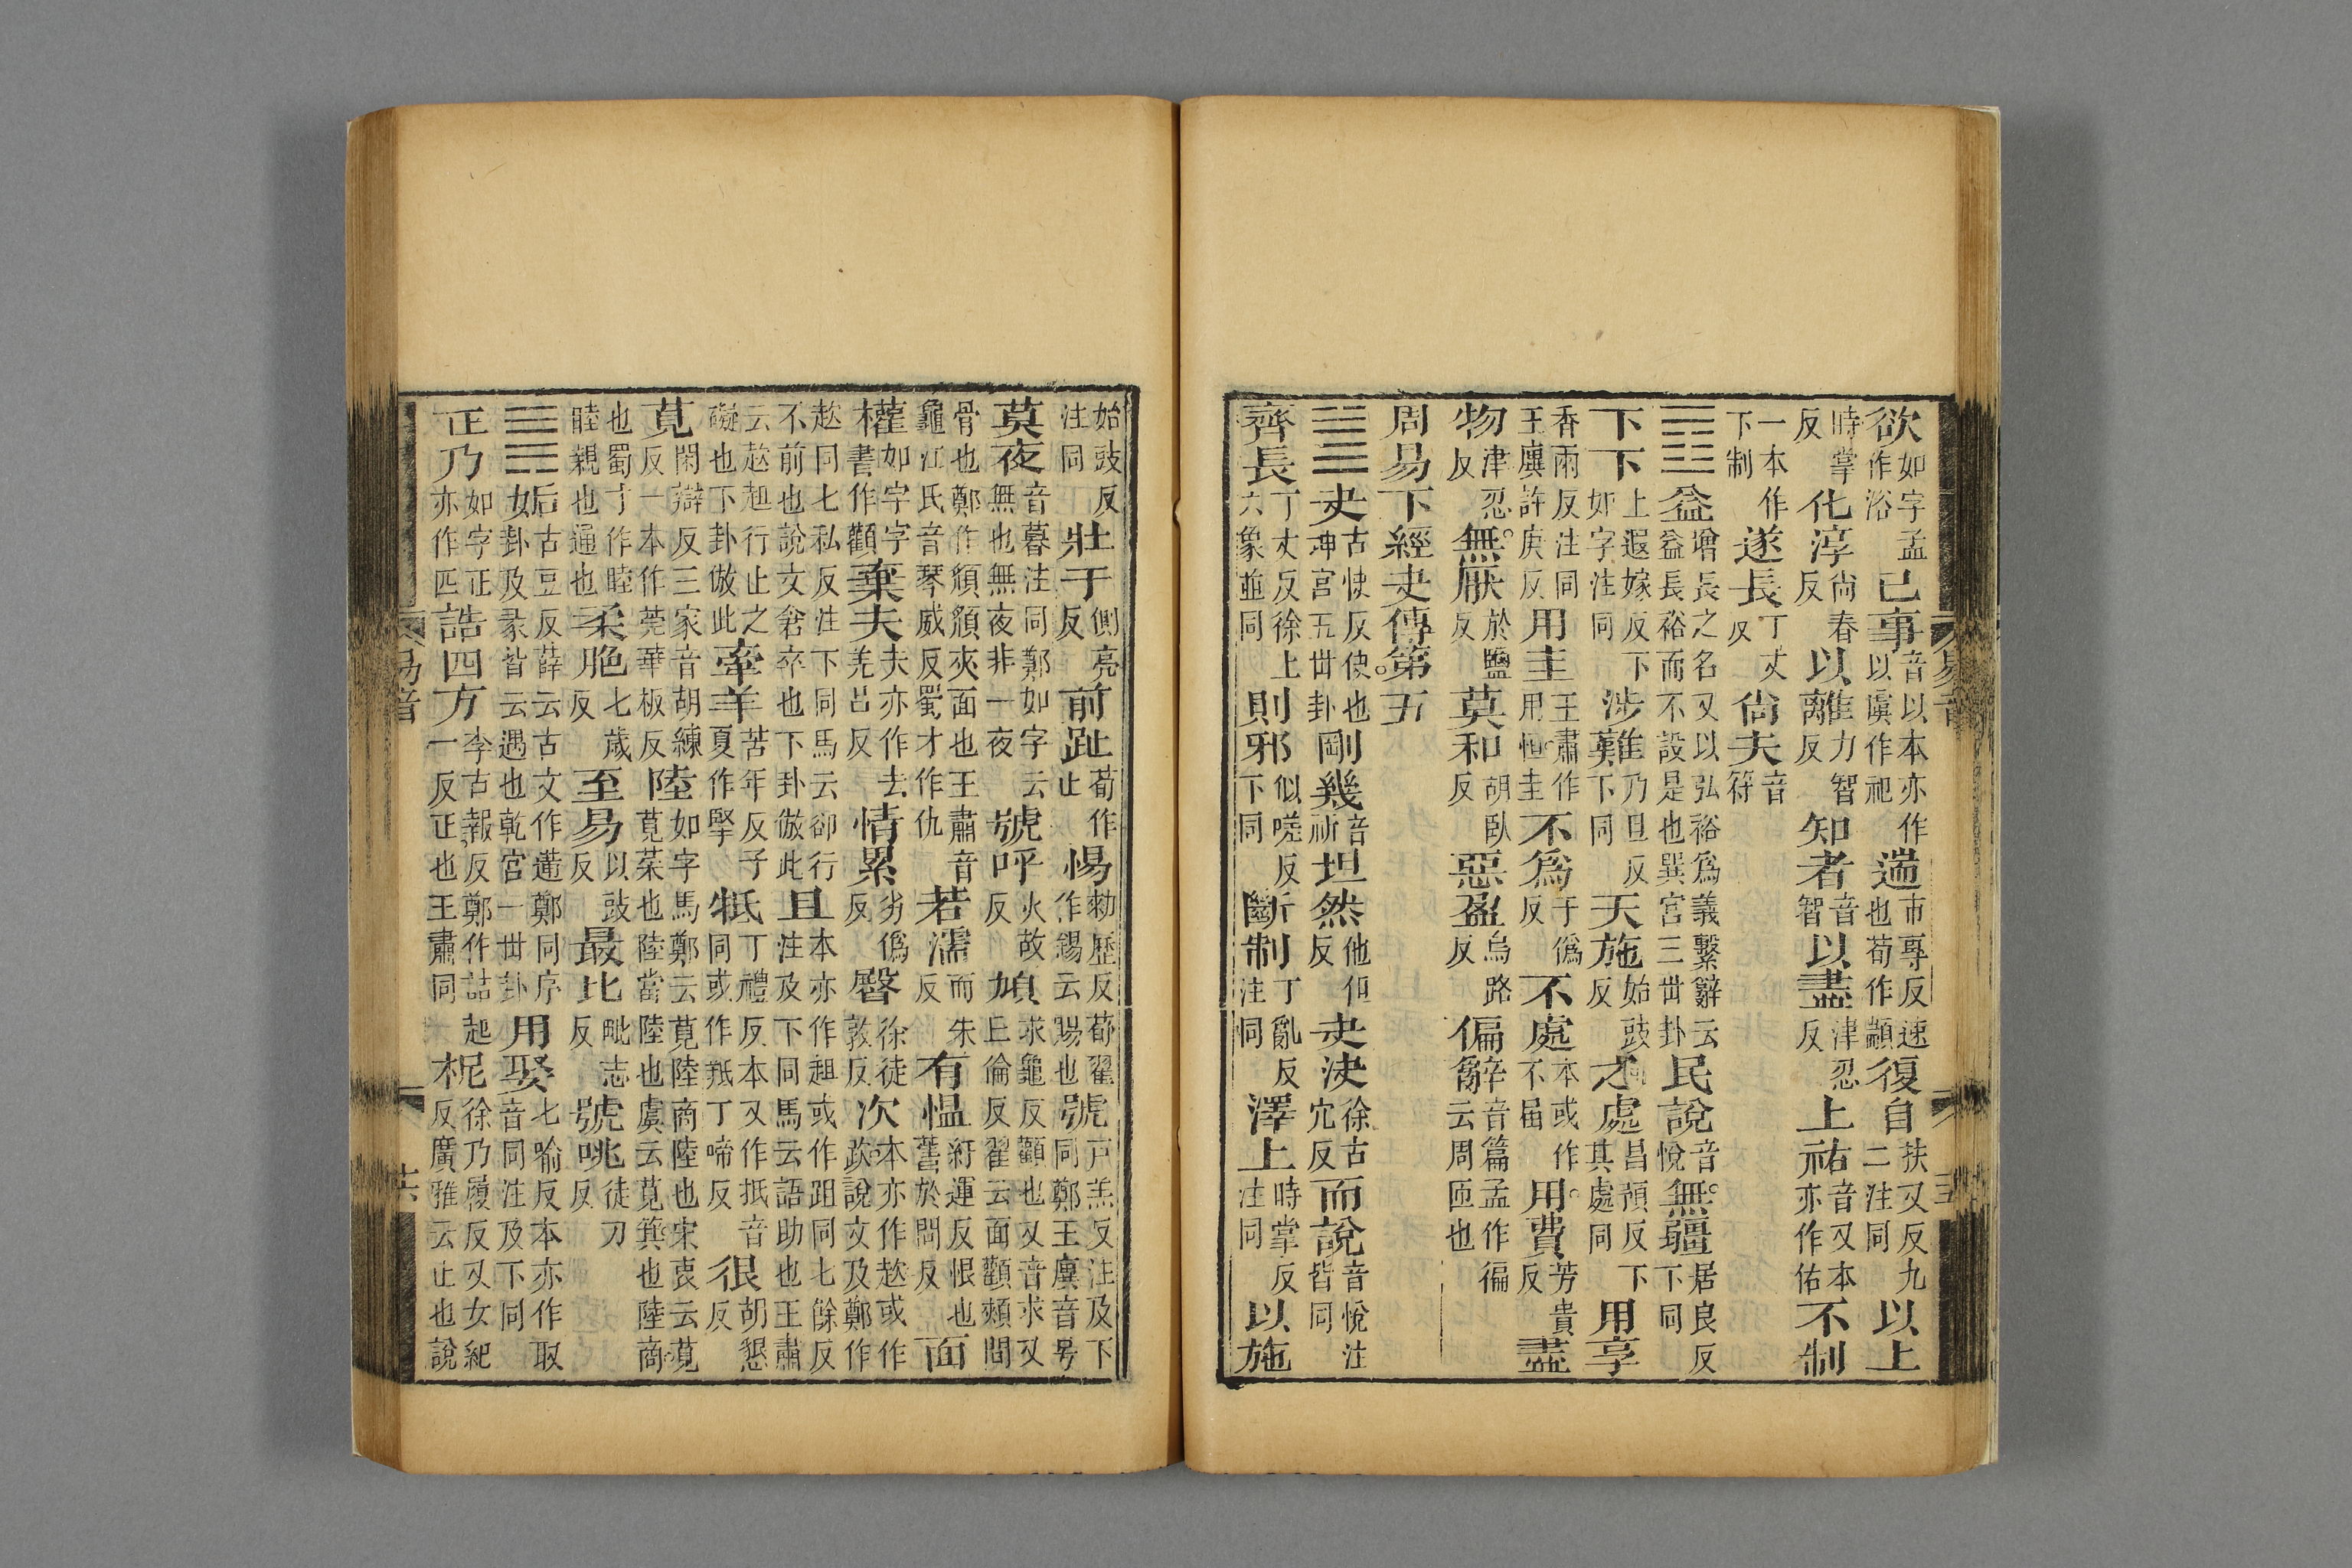 欲如字孟作浴已事音以本亦作以虞作祀遄市專反速也荀作顓復自扶又反九二注同以上
時掌反化淳尚春反以離力智反知者音智以盡津忍反上祐音又本亦作佑不制
一本作下制遂長丁丈反尚夫音符
䷩益增長之名又以弘裕為義繫辭云益長裕而不設是也巽宮三世卦民說音悅無疆居良反下同
下下上遐嫁反下如字注同涉難乃旦反下同天施始豉反才處昌預反下其處同用享
香兩反注同王廙許庚反用圭王肅作用桓圭不為于偽反不處本或作不届用費芳貴反盡
物津忍反無厭於鹽反莫和胡臥反惡盈烏路反偏辭音篇孟作徧云周匝也
周易下經夬傳第五
䷪夬古快反決也坤宮五世卦剛幾音祈坦然他但反夬決徐古穴反而說音悅注皆同
齊長丁丈反徐上六象並同則邪似嗟反下同斷制丁亂反注同澤上時掌反注同以施
始豉反注同壯于側亮反前趾荀作止惕勑歷反荀翟作錫云賜也號戶羔反注及下同鄭王廙音号
莫夜音暮注同鄭如字云無也無夜非一夜號呼火故反頄求龜反顴也又音求又丘倫反翟云面顴頰間
骨也鄭作頯頯夾面也王肅音龜江氏音琴威反蜀才作仇若濡而朱反有慍紆運反恨也舊於問反面
權如字字書作顴棄夫夫亦作去羌呂反情累劣偽反臀徐徒敦反次本亦作趑或作趺說文及鄭作
趑同七私反注下同馬云卻行不前也說文倉卒也下卦倣此且本亦作趄或作跙同七餘反注及下同馬云語助也王肅
云趑趄行止之礙也下卦倣此牽羊苦年反子夏作掔牴丁禮反本又作抵音同或作羝丁啼反很胡懇反
莧閑辯反三家音胡練反一本作莞華板反陸如字馬鄭云莧陸商陸也宋衷云莧莧菜也陸當陸也虞云莧蕢也陸商
也蜀才作睦睦親也通也柔脆七歲反至易以豉反最比毗志反號咷徒刀反
䷫姤古豆反薛云古文作遘鄭同序卦及彖皆云遇也乾宮一世卦用娶七喻反本亦作取音同注及下同
正乃如字正亦作匹誥四方李古報反鄭作詰起一反正也王肅同柅徐乃履反又女紀反廣雅云止也說